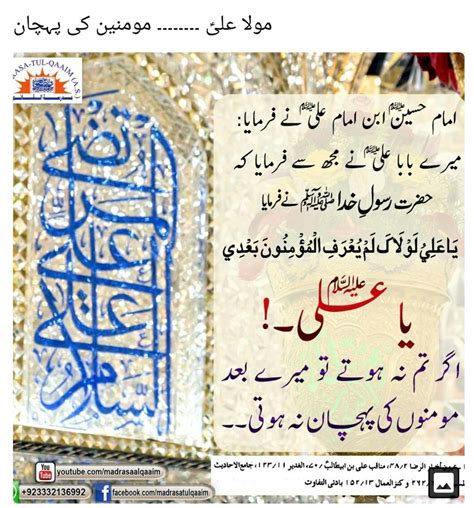 مولا علیؑ ........ مومنین کی پہچان
RASA-TUL-QAAIM (A.S.)
امام حسینؑ ابن امام علیؑ نے فرمایا:
میرے بابا علیؑ نے مجھ سے فرمایا کہ
حضرت رسولِ خدا ﷺ نے فرمایا
يَاعَلِيُّ لَوْلَاكَ لَمْ يُعْرَفِ الْمُؤْمِنُونَ بَعْدِي
یا علی علیہ السلام ۔!
اگر تم نہ ہوتے تو میرے بعد
مومنوں کی پہچان نہ ہوتی۔۔
الرضا ۳۸/۲، مناقب علی بن ابیطالبؑ ۷۰، الغدیر ۱۲۳/۱۱، جامع الاحادیث
و کنز العمال ۱۵۲/۱۳ بادنی التفاوت
السلام علیک یا علی المرتضی
You Tube youtube.com/madrasaalqaaim
+923332136992 facebook.com/madrasatulqaaim